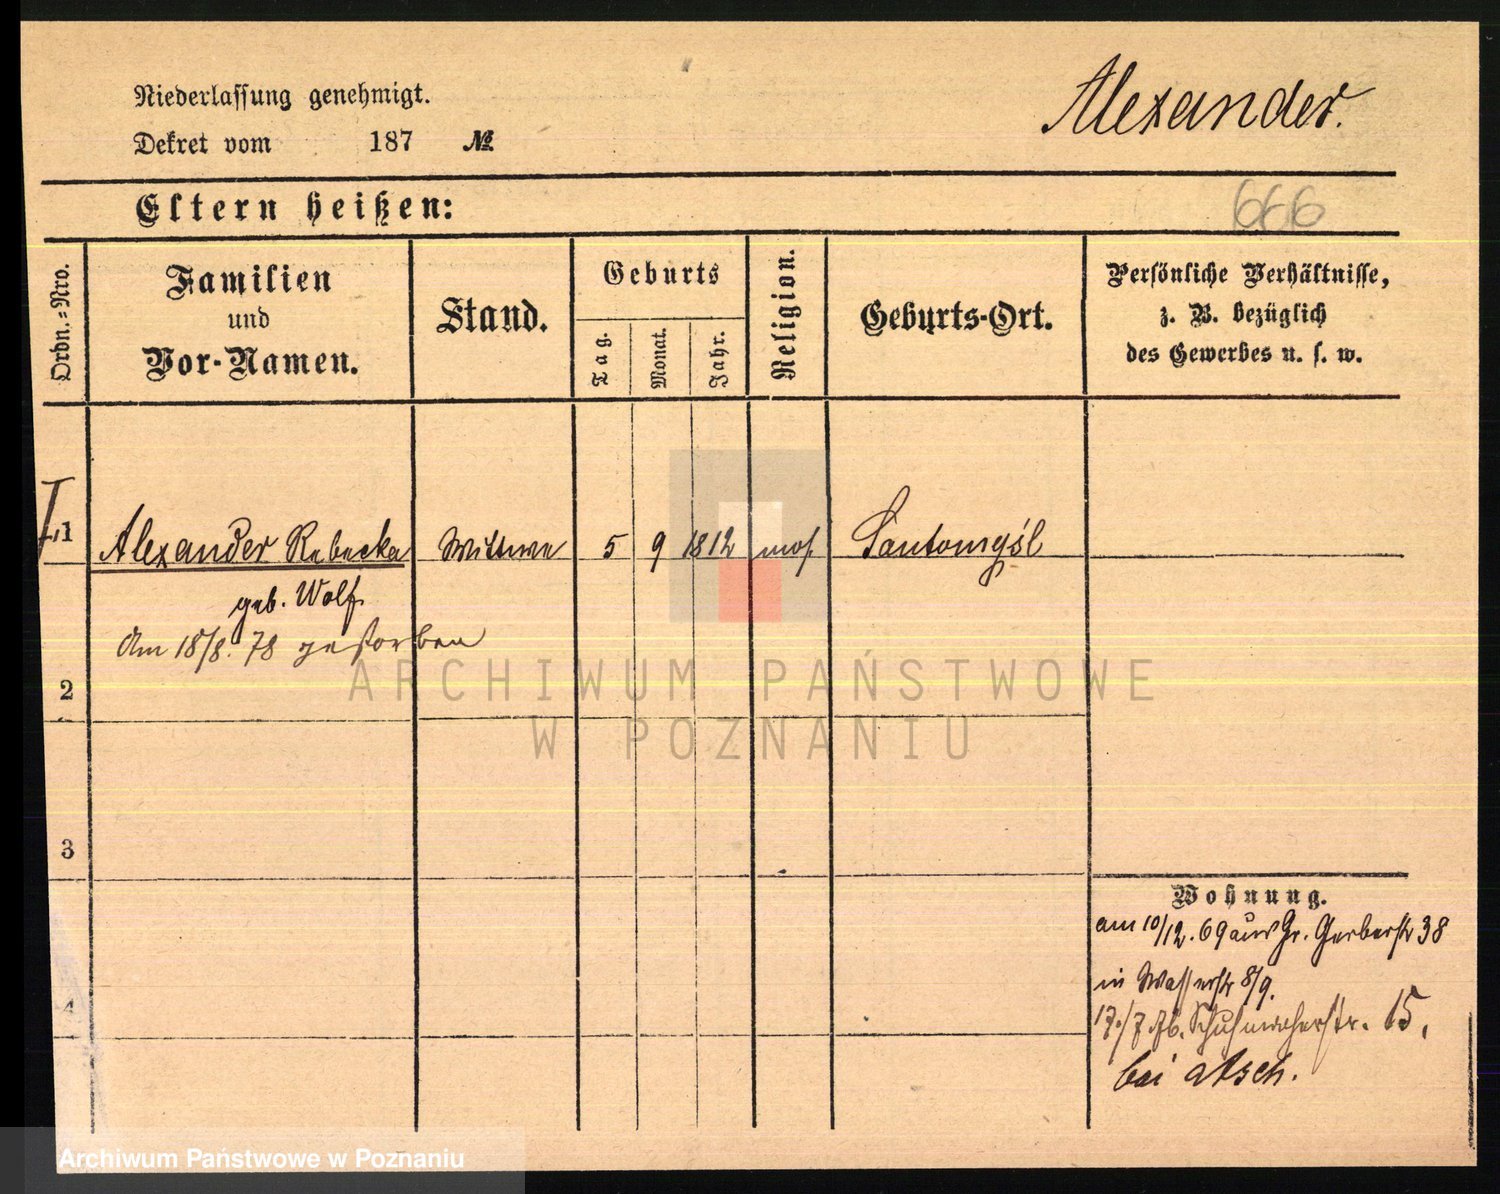 Niederlassung genehmigt.
Dekret vom 187 №
Alexander.
Eltern heißen:
666
Ordn.=Nro.
Familien
und
Vor-Namen.
Stand.
Geburts
Tag.
Monat.
Jahr.
Religion.
Geburts-Ort.
Persönliche Verhältnisse,
z. B. bezüglich
des Gewerbes u. s. w.
1 Alexander Rebecka Wittwe 5 9 1812 mos. Santomysl
geb. Wolf
Am 18/8. 78 gestorben
2
3
4
Wohnung.
am 10/12. 69 aus Gr. Gerberstr 38
in Wasserstr 8/9.
17./7. 76. Schuhmacherstr. 15.
bei Asch.
ARCHIWUM PAŃSTWOWE
W POZNANIU
Archiwum Państwowe w Poznaniu